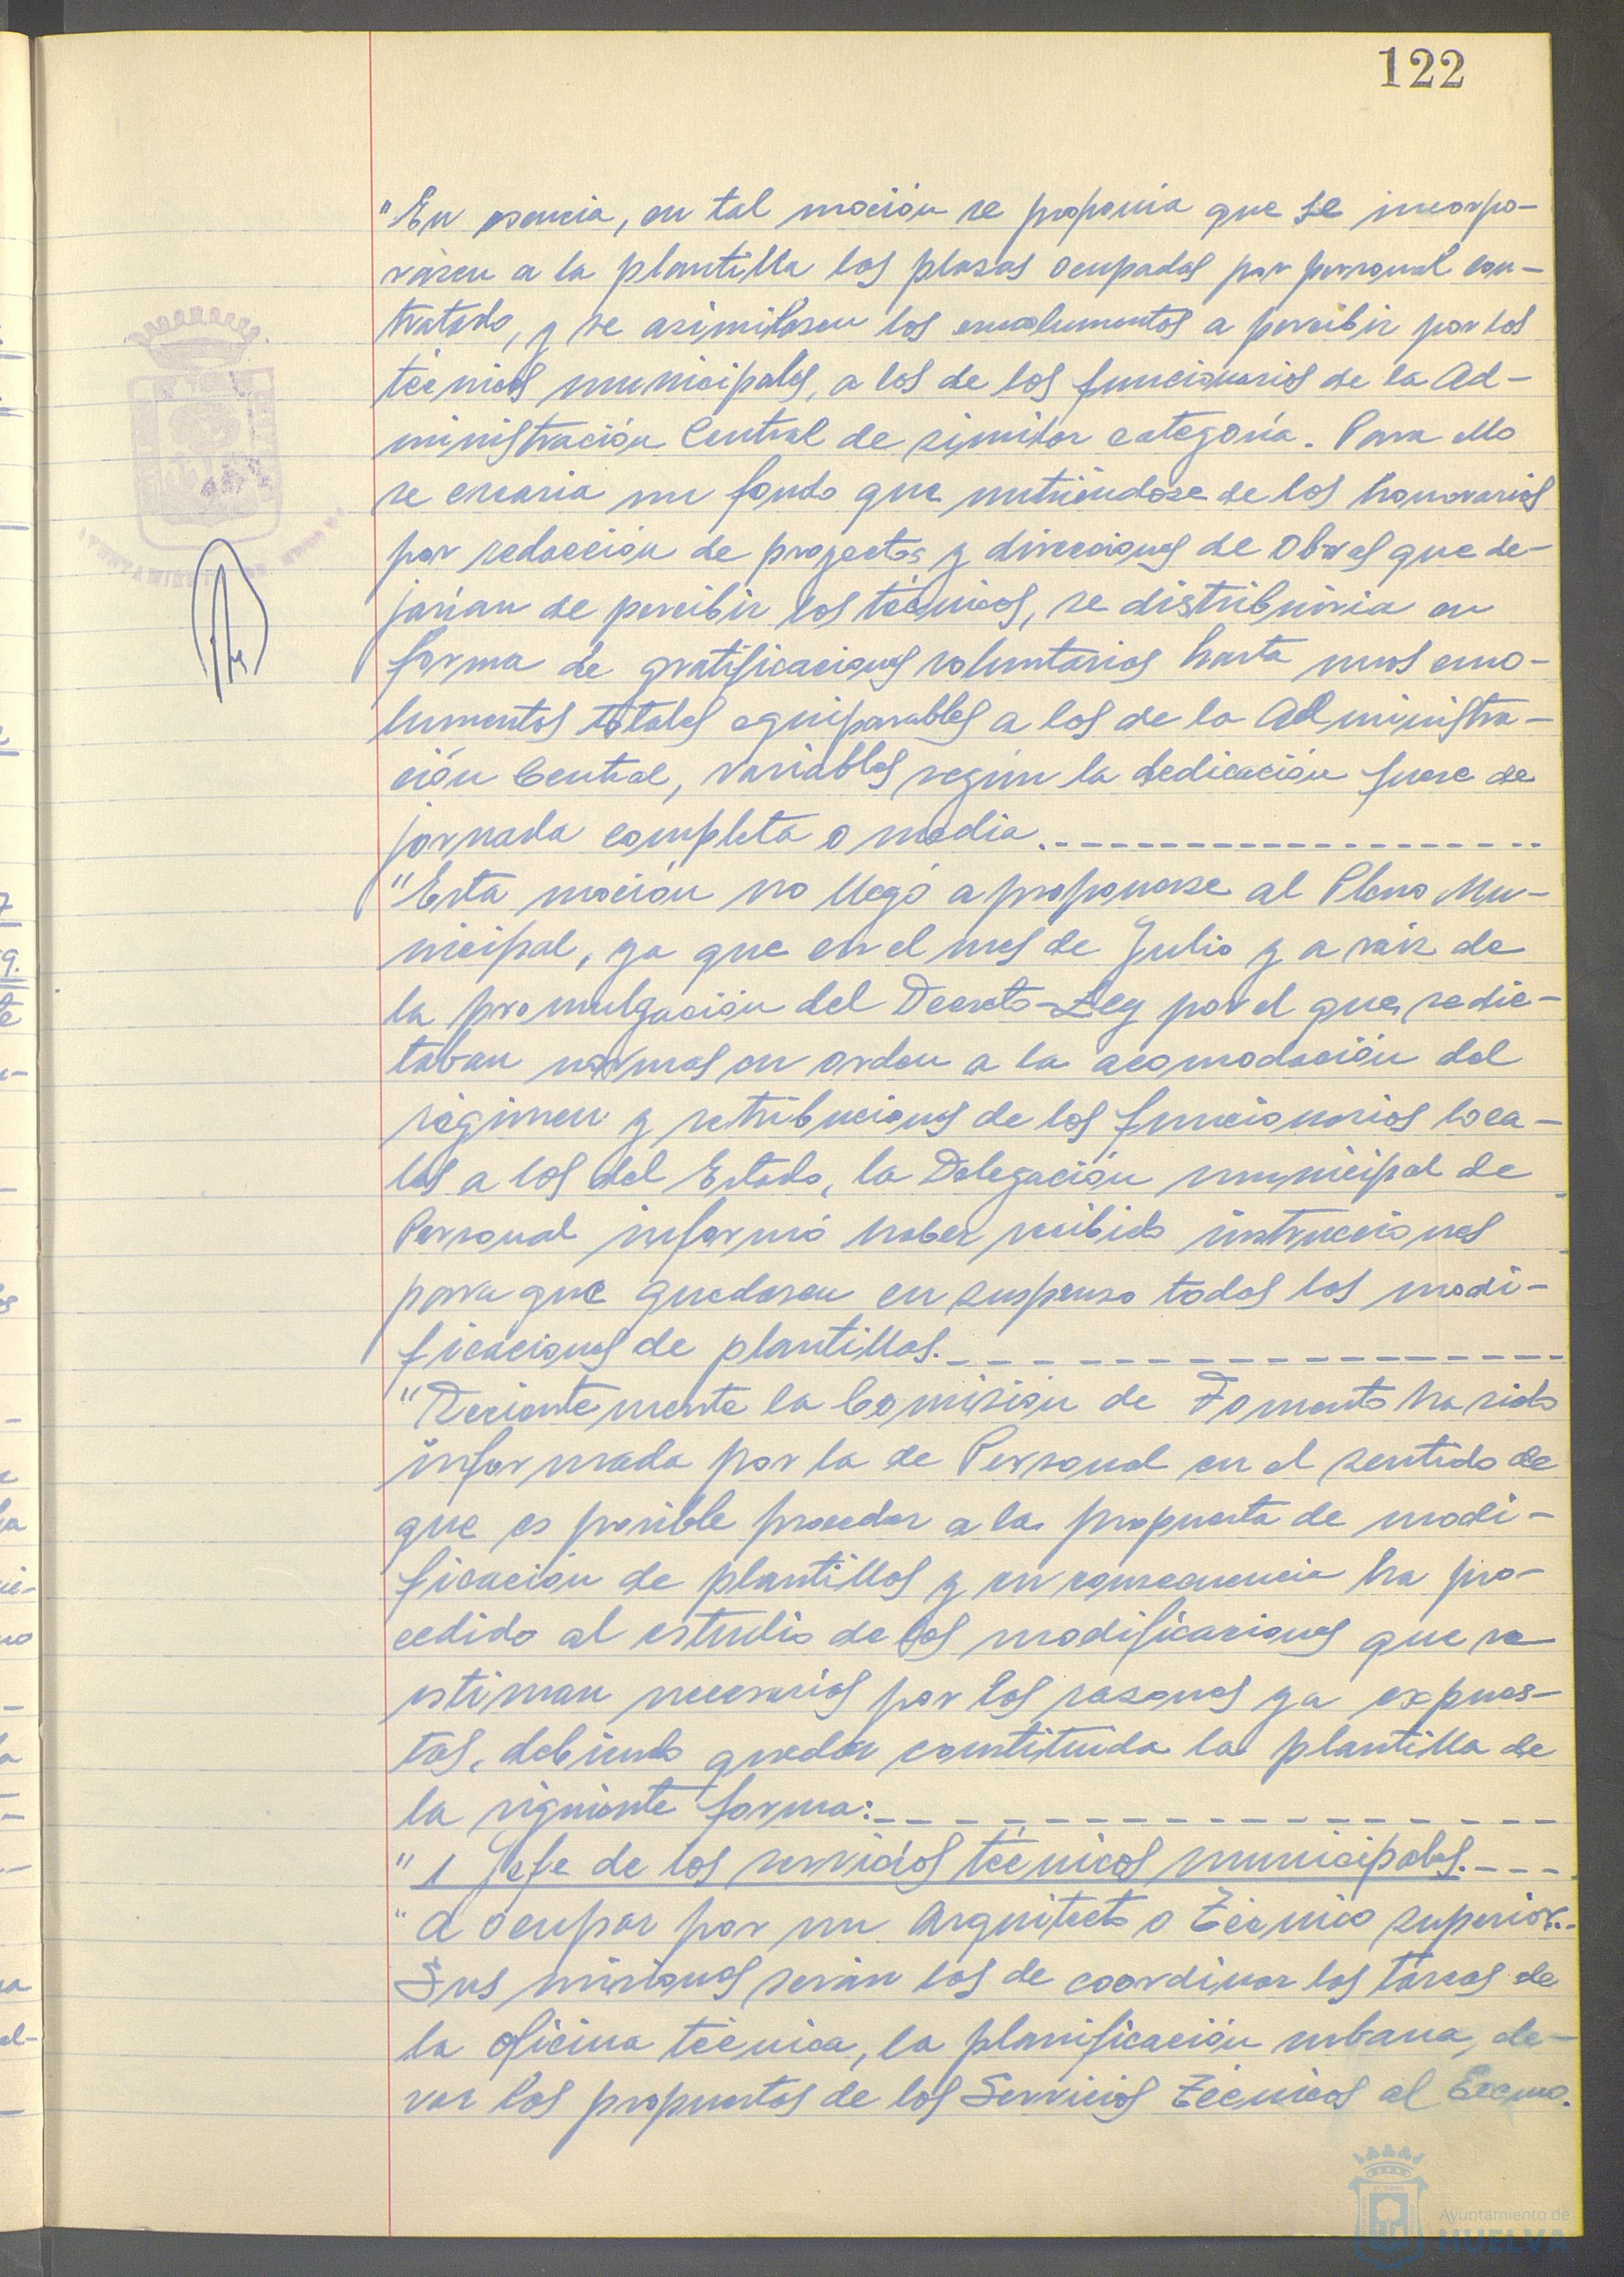 122
"En esencia, en tal moción se proponía que se incorpo-
rasen a la plantilla las plazas ocupadas por personal con-
tratado, y se asimilasen los emolumentos a percibir por los
técnicos municipales, a los de los funcionarios de la Ad-
ministración Central de similar categoría. Para ello
se crearia un fondo que nutriéndose de los honorarios
por redacción de proyectos y direcciones de Obras que de-
jarían de percibir los técnicos, se distribuiria en
forma de gratificaciones voluntarias hasta unos emo-
lumentos totales equiparables a los de la Administra-
ción Central, variables según la dedicación fuese de
jornada completa o media.
"Esta moción no llegó a proponerse al Pleno Mu-
nicipal, ya que en el mes de Julio y a raiz de
la promulgación del Decreto-Ley por el que se dic-
taban normas en orden a la acomodación del
régimen y retribuciones de los funcionarios loca-
les a los del Estado, la Delegación municipal de
Personal informó haber recibido instrucciones
para que quedasen en suspenso todas las modi-
ficaciones de plantillas.
"Recientemente la Comisión de Fomento ha sido
informada por la de Personal en el sentido de
que es posible proceder a la propuesta de modi-
ficación de plantillas y en consecuencia ha pro-
cedido al estudio de las modificaciones que se
estiman necesarias por las razones ya expues-
tas, debiendo quedar constituida la plantilla de
la siguiente forma:
"1 Jefe de los servicios técnicos municipales.
"a ocupar por un Arquitecto o Técnico superior.
Sus misiones serán las de coordinar las tareas de
la oficina técnica, la planificación urbana,
las propuestas de los Servicios Técnicos al Excmo.
Ayuntamiento de
HUELVA